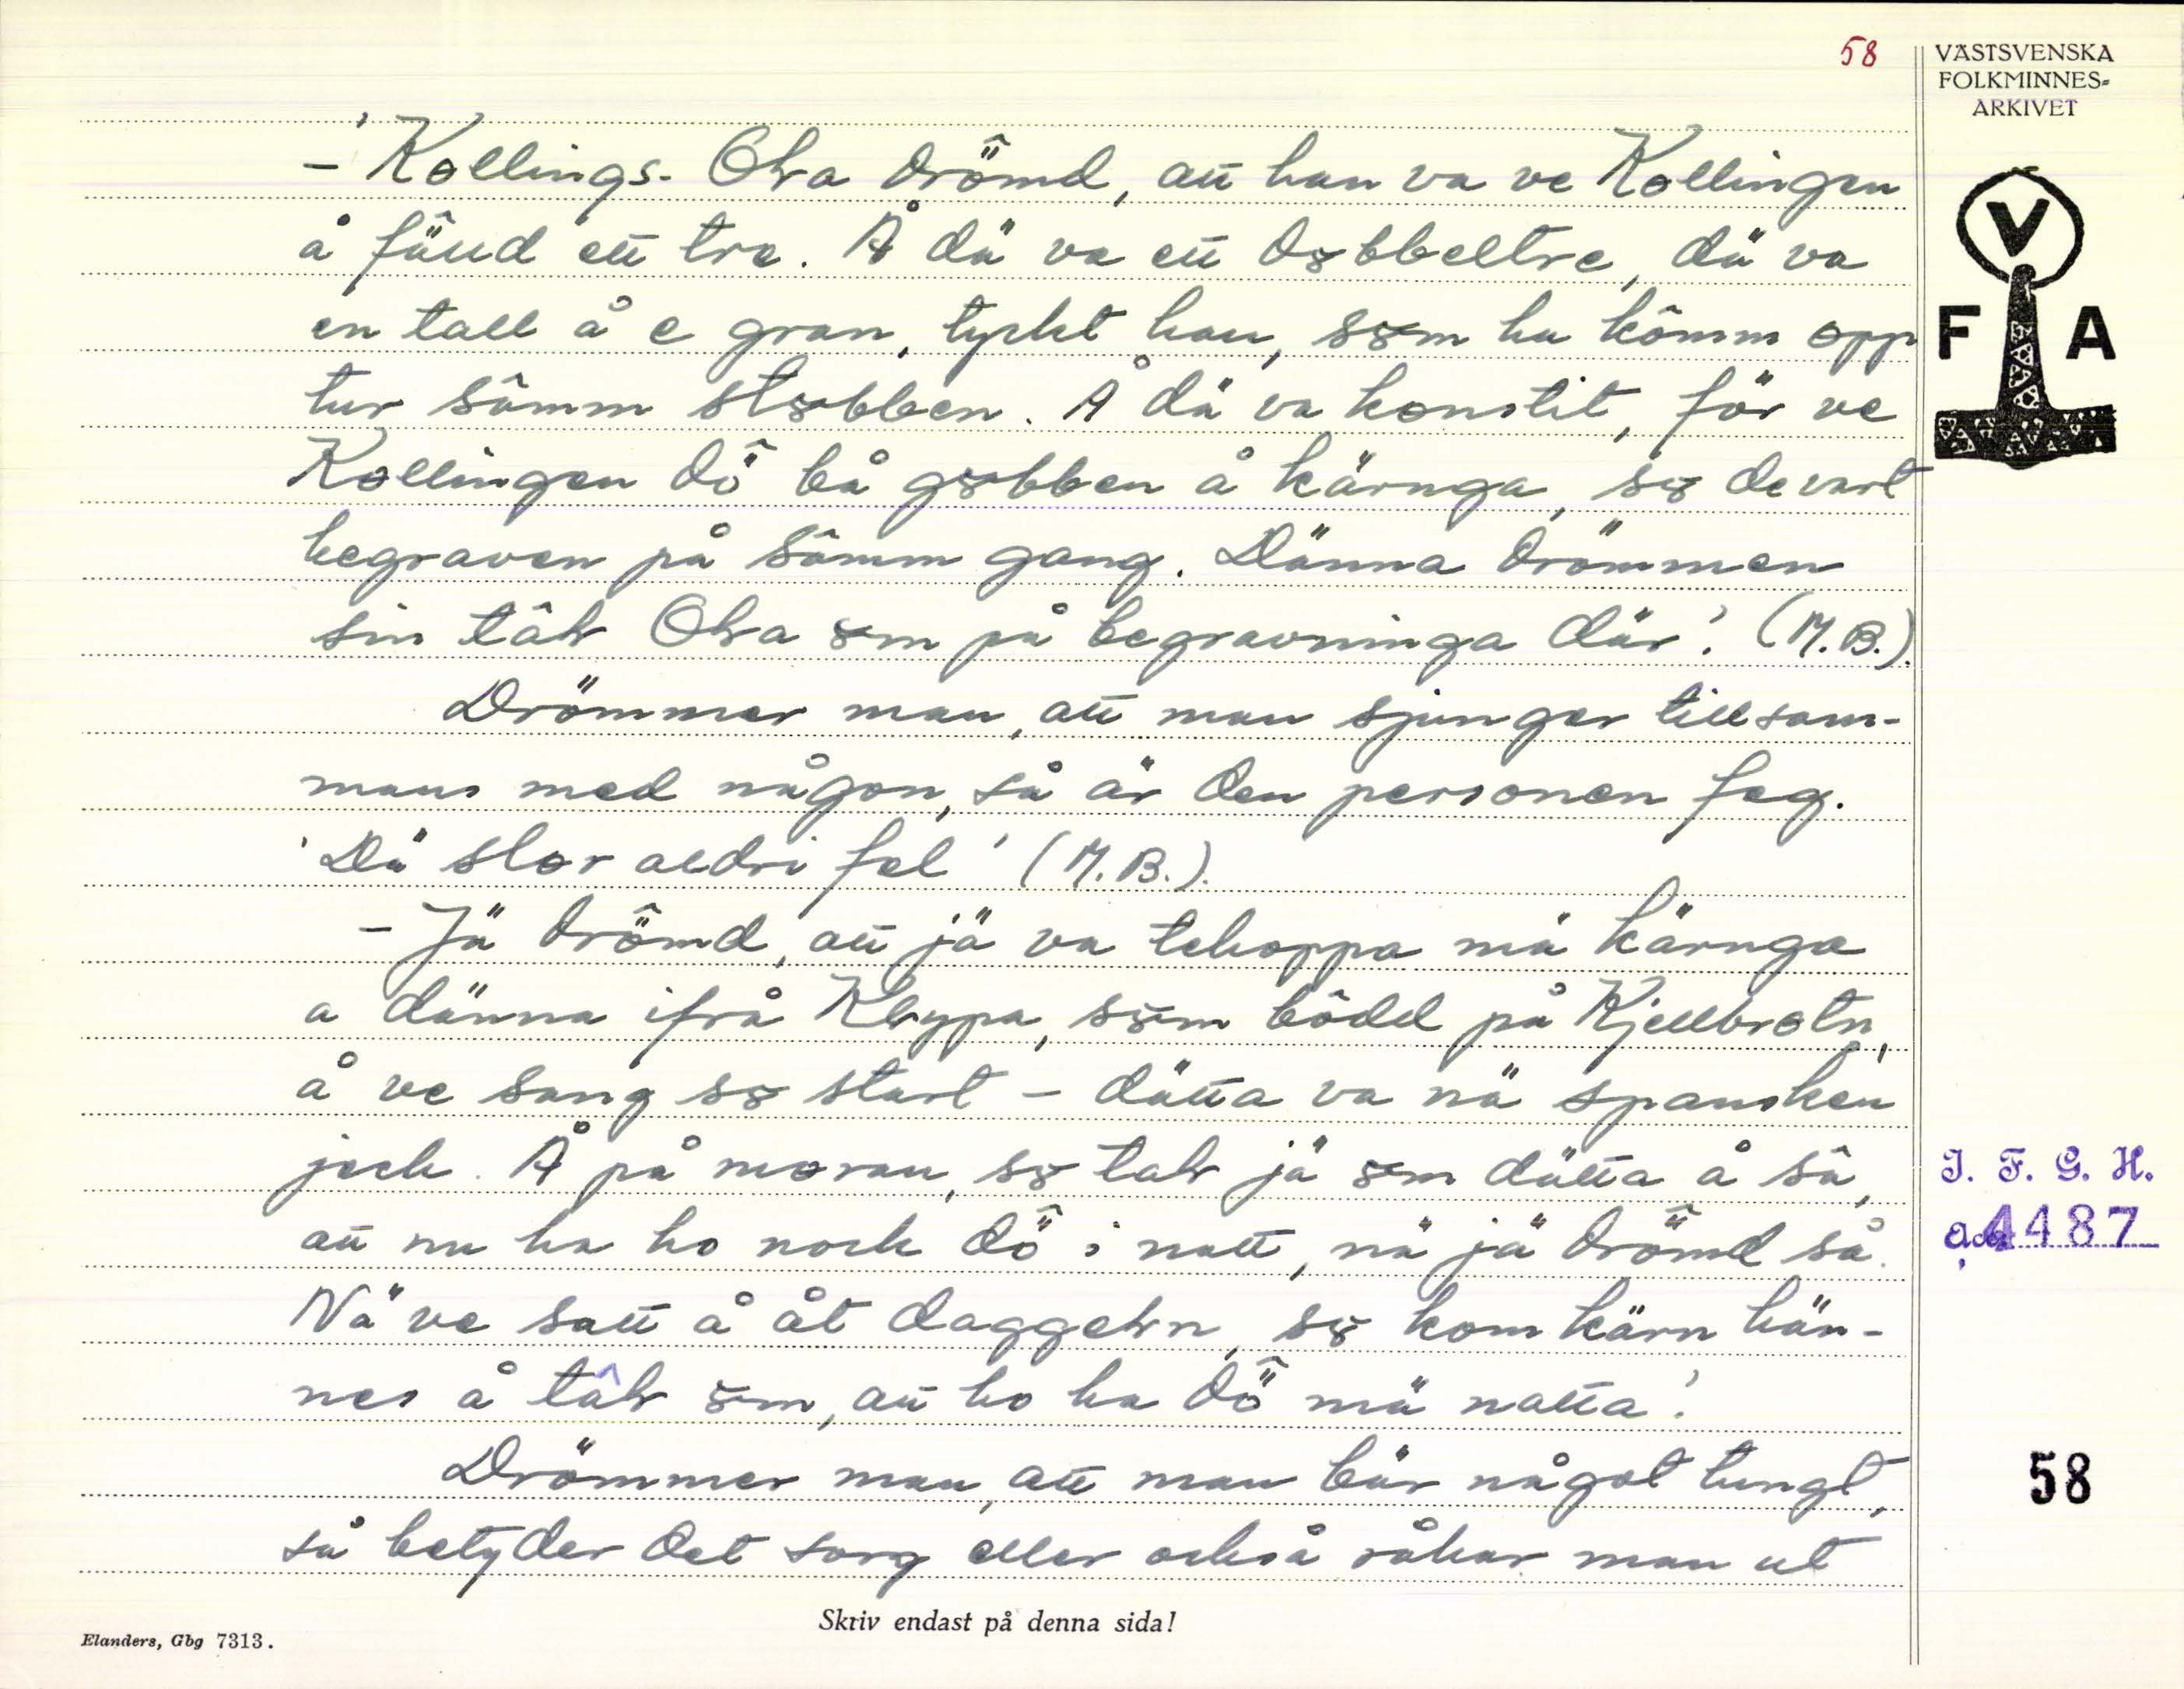 58
VÄSTSVENSKA
FOLKMINNES-
ARKIVET
V
F A
– 'Kollings-Ola drömd, att han va ve Kollingen
å fälld ett tre. Å dä va ett dobbeltre, dä va
en tall å e gran, tyckt han, som ha kômm opp
tur sâmm stobben. Å dä va konstit, för ve
Kollingen dö̂ bå gobben å kärnga, so de vart
begraven på sâmm gang. Dänna drömmen
sin tâl Ola om på begravninga där'. (M.B.).
Drömmer man, att man sjunger tillsam-
mans med någon, så är den personen feg.
'Dä slor aldri fel' (M.B.).
– Jä drömd, att jä va tehoppa mä kärnga
a dänna ifrå Klypa, som bôdd på Kjellbrotn,
å ve sang so start – dätta va nä spansken
jeck. Å på moran, so tal jä om dätta å sâ,
att nu ha ho nock dö̂ i natt, nä jä drömd så.
Nä ve satt å åt daggeln, so kom kärn hän-
nes å tâl om, att ho ha dö̂ mä natta'.
Drömmer man, att man bär något tungt,
så betyder det sorg eller också råkar man ut
I. F. G. H.
4487
58
Skriv endast på denna sida!
Elanders, Gbg 7313.